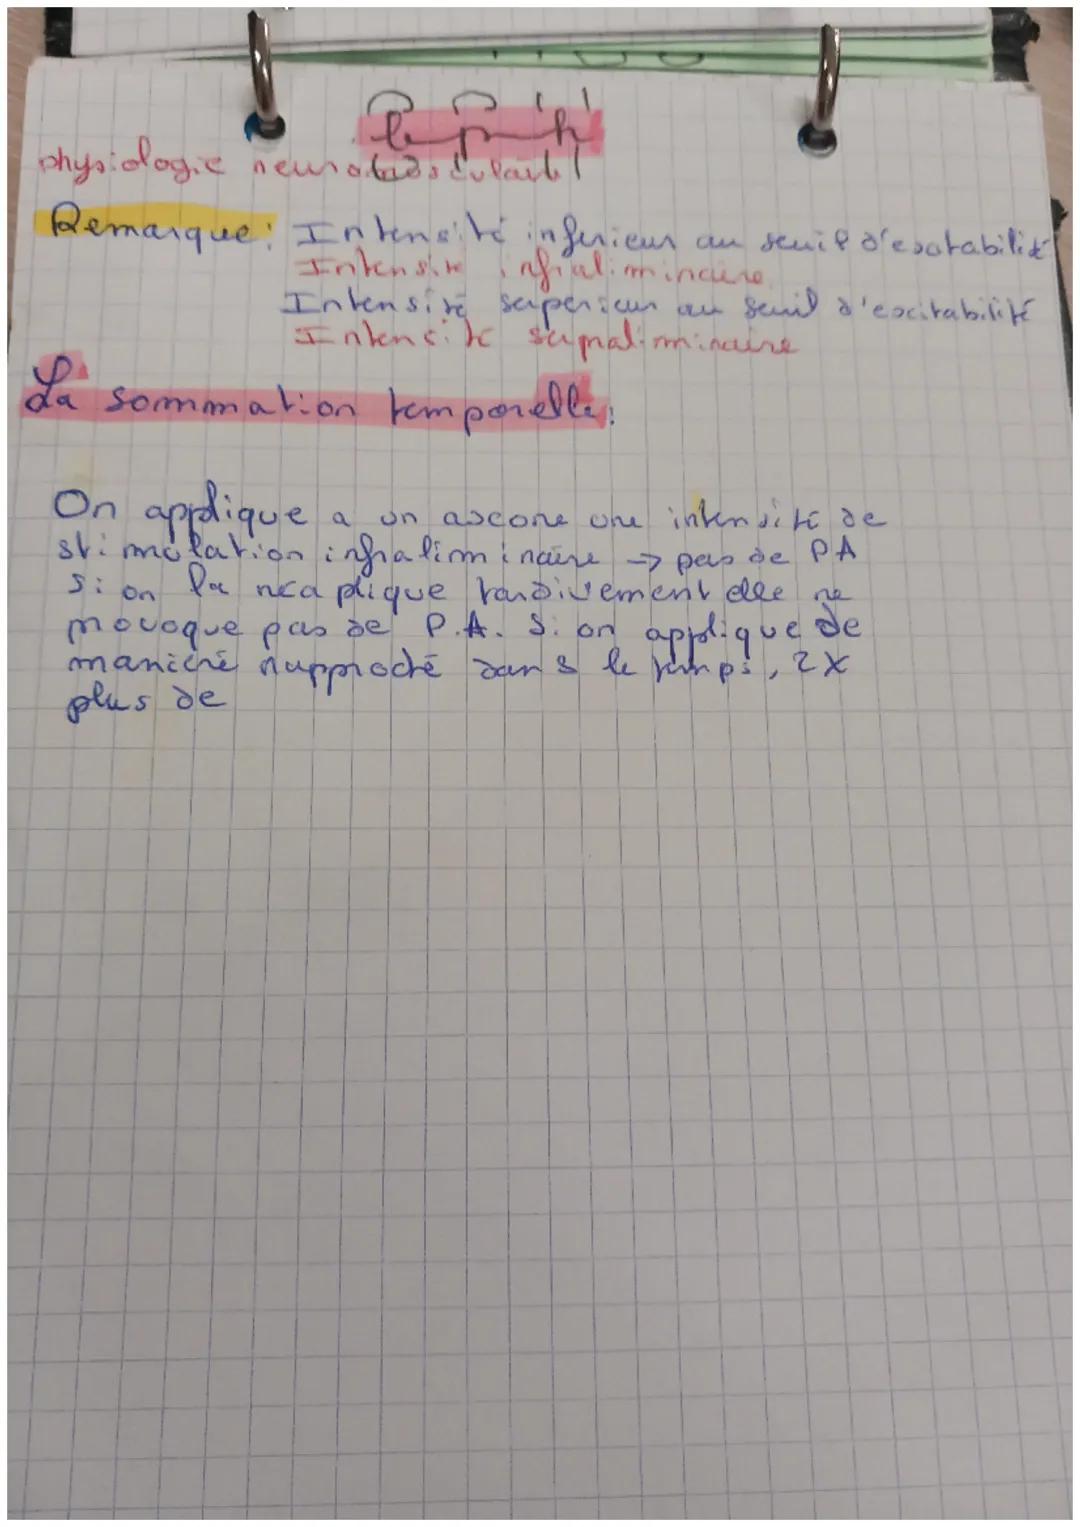 le ph
physiologie neuromusculaire
Remarque: Intensité inferieur au seuil d'excitabilité
Intensite infraliminaire
Intensité superieur au seuil d'excitabilité
Intensite supraliminaire
La sommation temporelle:
On applique a un axone une intensité de
stimulation infraliminaire → pas de PA
Si on la réaplique tardivement elle ne
provoque pas de P.A. Si on applique de
manière rapproché dans le temps, 2x
plus de